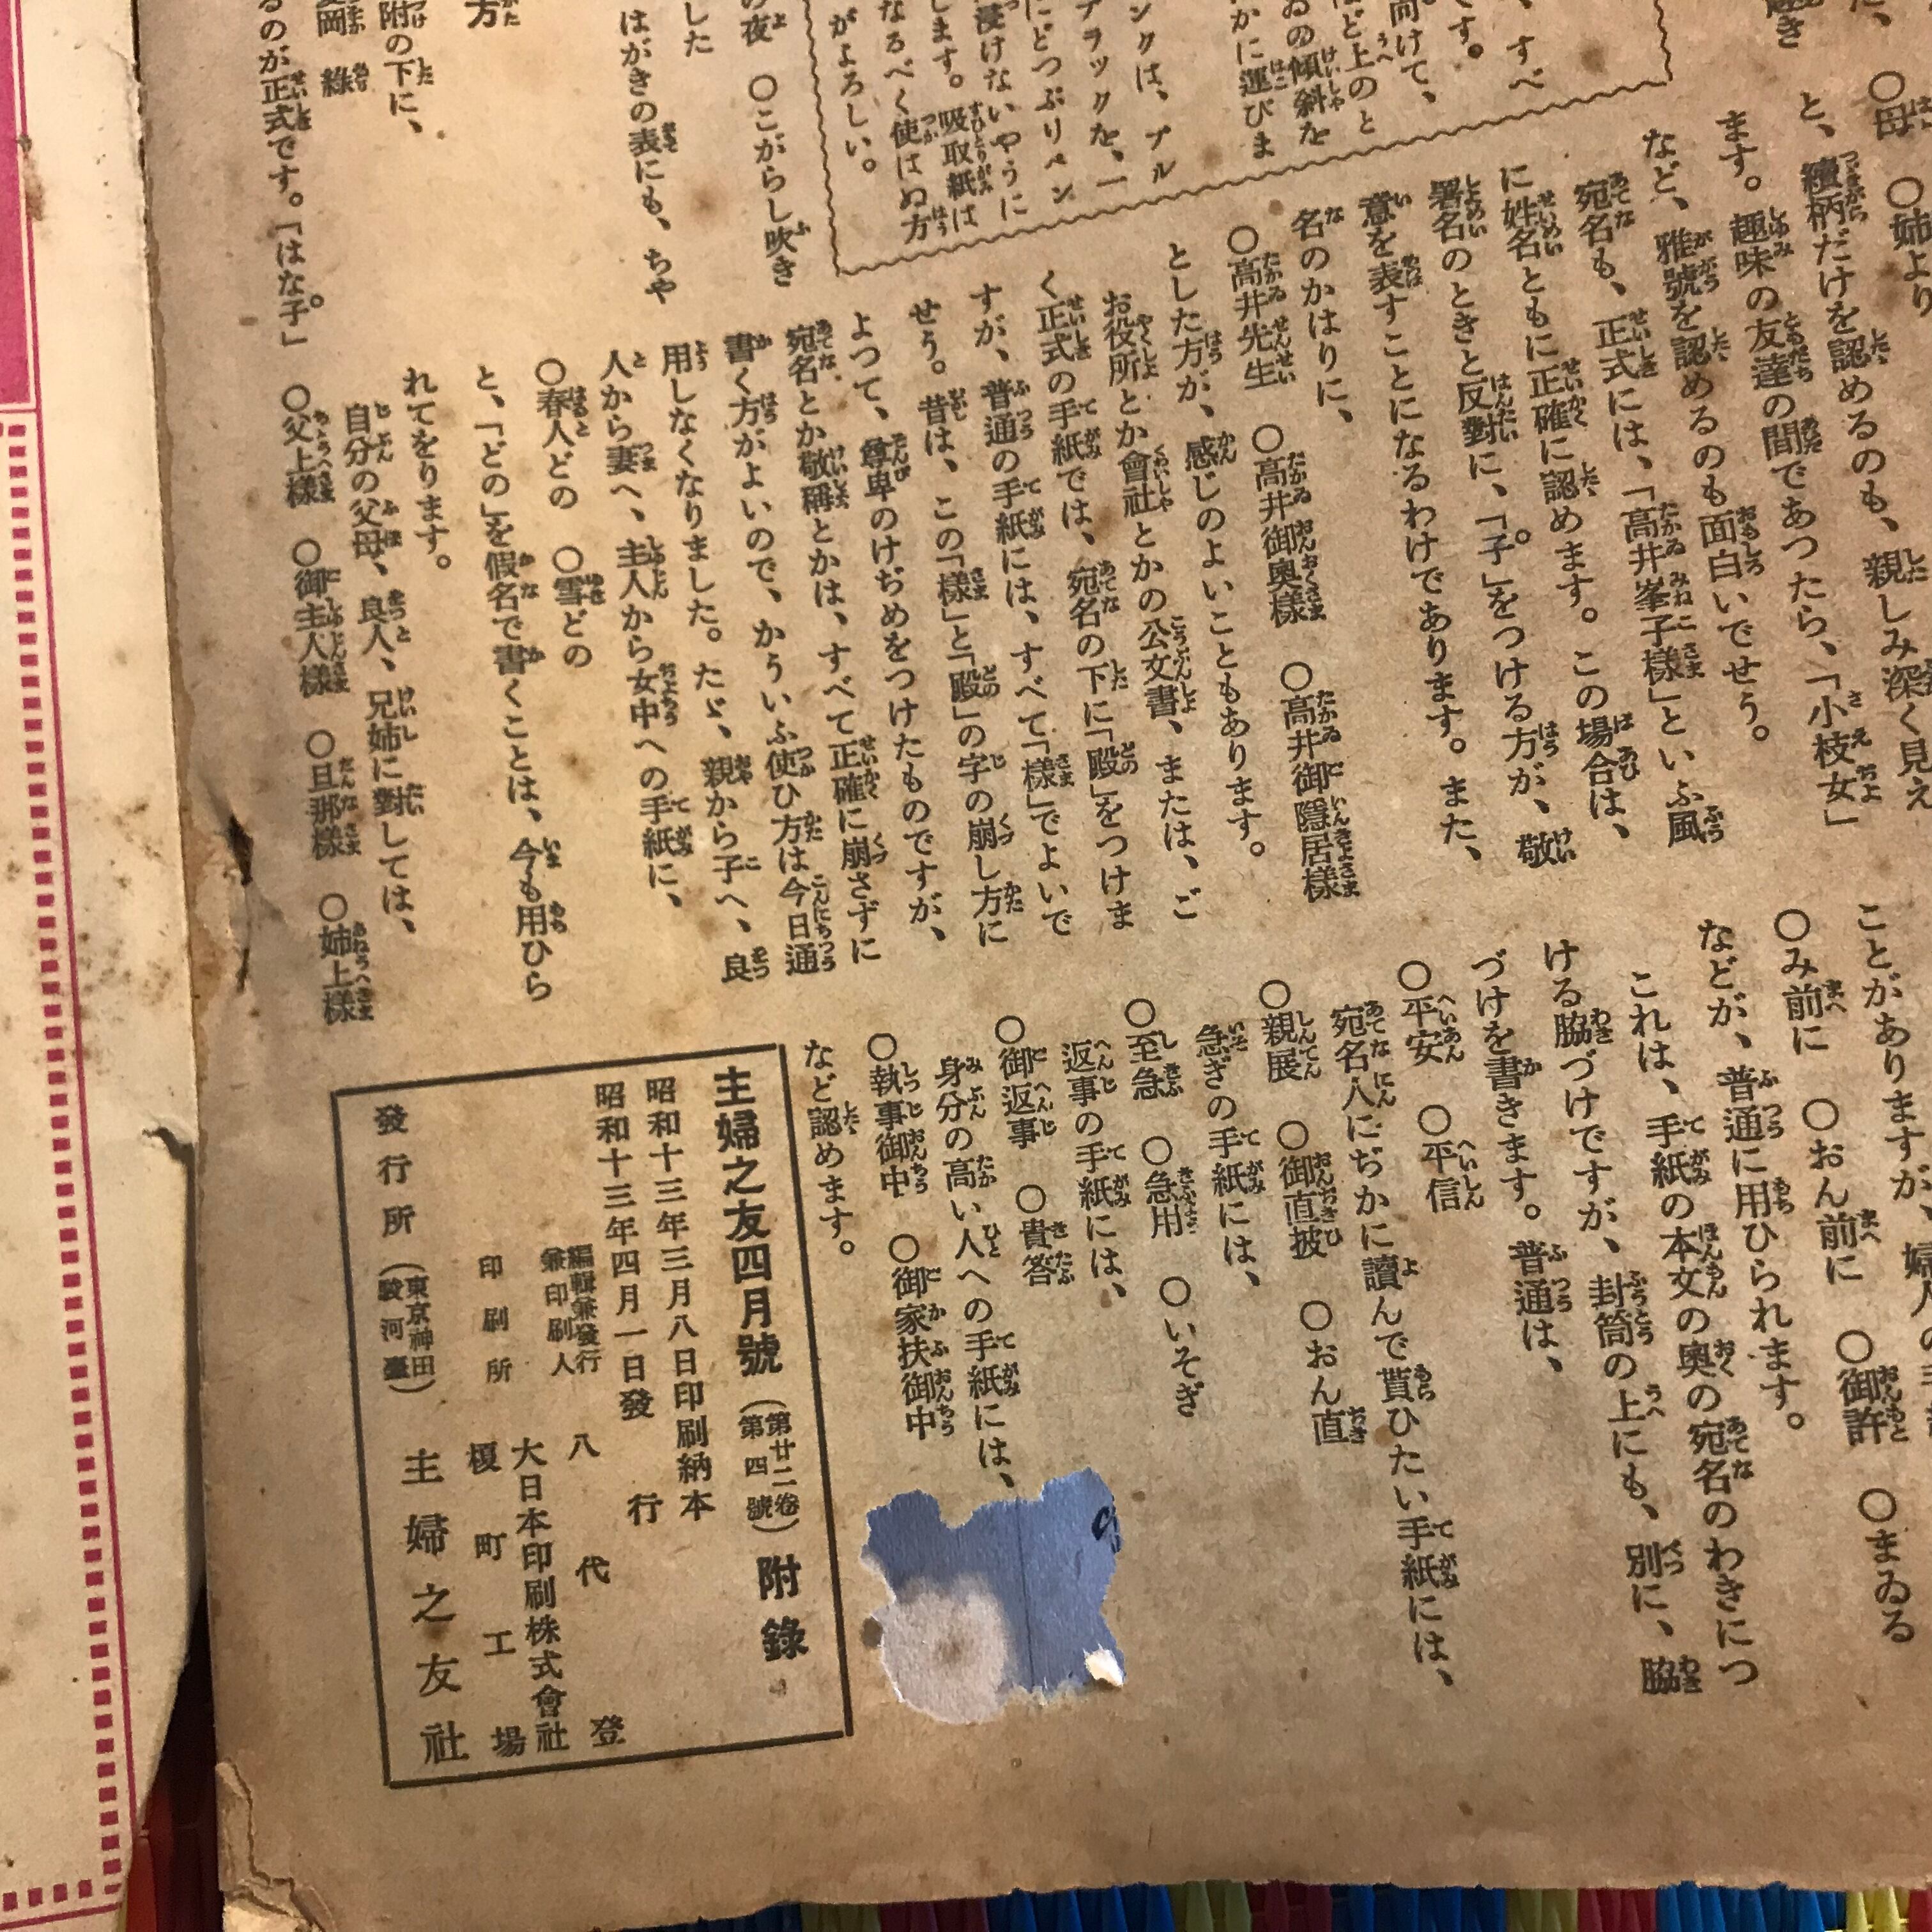 、すべ
です。
向けて、
ほど上のと
ゐの傾斜を
かに運びま
ンクは、ブル
ブラックを、一
にどつぷりペン
浸けないやうに
します。吸取紙は
なるべく使はぬ方
がよろしい。
の夜　○こがらし吹き
した
はがきの表にも、ちや
方
附の下に、
岡　綠
るのが正式です。「はな子」
○母　○姉より
と、續柄だけを認めるのも、親しみ深く見え
ます。趣味の友達の間であつたら、「小枝女」
など、雅號を認めるのも面白いでせう。
宛名も、正式には、「高井峯子樣」といふ風
に姓名ともに正確に認めます。この場合は、
署名のときと反對に、「子」をつける方が、敬
意を表すことになるわけであります。また、
名のかはりに、
○高井先生　○高井御奧樣　○高井御隱居樣
とした方が、感じのよいこともあります。
お役所とか會社とかの公文書、または、ご
く正式の手紙では、宛名の下に「殿」をつけま
すが、普通の手紙には、すべて「樣」でよいで
せう。昔は、この「樣」と「殿」の字の崩し方に
よつて、尊卑のけぢめをつけたものですが、
宛名とか敬稱とかは、すべて正確に崩さずに
書く方がよいので、かういふ使ひ方は今日通
用しなくなりました。たゞ、親から子へ、良
人から妻へ、主人から女中への手紙に、
○春人どの　○雪どの
と、「どの」を假名で書くことは、今も用ひら
れてをります。
自分の父母、良人、兄姉に對しては、
○父上樣　○御主人樣　○旦那樣　○姉上樣
ことがありますが、婦人の
○み前に　○おん前に　○御許　○まゐる
などが、普通に用ひられます。
これは、手紙の本文の奧の宛名のわきにつ
ける脇づけですが、封筒の上にも、別に、脇
づけを書きます。普通は、
○平安　○平信
宛名人にぢかに讀んで貰ひたい手紙には、
○親展　○御直披　○おん直
急ぎの手紙には、
○至急　○急用　○いそぎ
返事の手紙には、
○御返事　○貴答
身分の高い人への手紙には、
○執事御中　○御家扶御中
など認めます。
主婦之友四月號（第廿二卷第四號）附錄
昭和十三年三月八日印刷納本
昭和十三年四月一日發行
編輯兼發行兼印刷人　八代登
大日本印刷株式會社
印刷所　榎町工場
發行所（東京神田駿河臺）主婦之友社